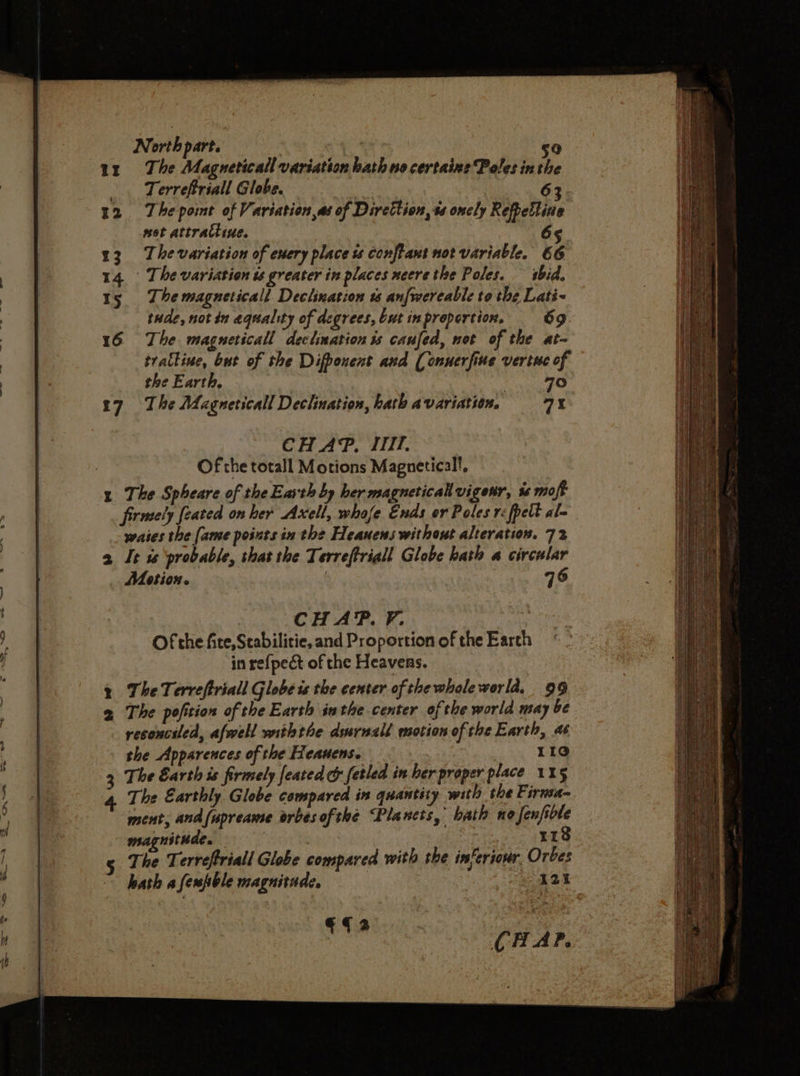 North part. 59
11 The Magneticall variation hath no certaine Poles in the
Terreſtriall Globe. 63
12 The point of Variation, as of Direction, is onely Reſpective
not attractiue. 65
13 The variation of euery place is conſtant not variable. 66
14 The variation is greater in places neere the Poles. ibid.
15 The magneticall Declination is anſwereable to the Lati-
tude, not in æquality of degrees, but in proportion. 69
16 The magneticall declination is cauſed, not of the at-
tractiue, but of the Diſponent and Conuerſiue vertue of
the Earth. 70
17 The Magneticall Declination, hath a variation. 71
CHAP. IIII.
Of the totall Motions Magneticall.
1 The Spheare of the Earth by her magneticall vigour, is moſt
firmely ſeated on her Axell, whoſe Ends or Poles reſpect al-
waies the ſame points in the Heauens without alteration. 72
2 It is probable, that the Terreſtriall Globe hath a circular
Motion. 76
CHAP. V.
Of the ſite, Stabilitie, and Proportion of the Earth
in reſpect of the Heavens.
1 The Terreſtriall Globe is the center of the whole world. 99
2 The poſition of the Earth in the center of the world may be
reconciled, aſwell with the diurnall motion of the Earth, as
the Apparences of the Heauens. 110
3 The Earth is firmely ſeated & ſetled in her proper place 115
4 The Earthly Globe compared in quantity with the Firma-
ment, and ſupreame orbes of the Planets, hath no ſenſible
magnitude. 118
5 The Terreſtriall Globe compared with the inferiour Orbes
hath a ſenſible magnitude. 121
¶¶ 2
CHAP.